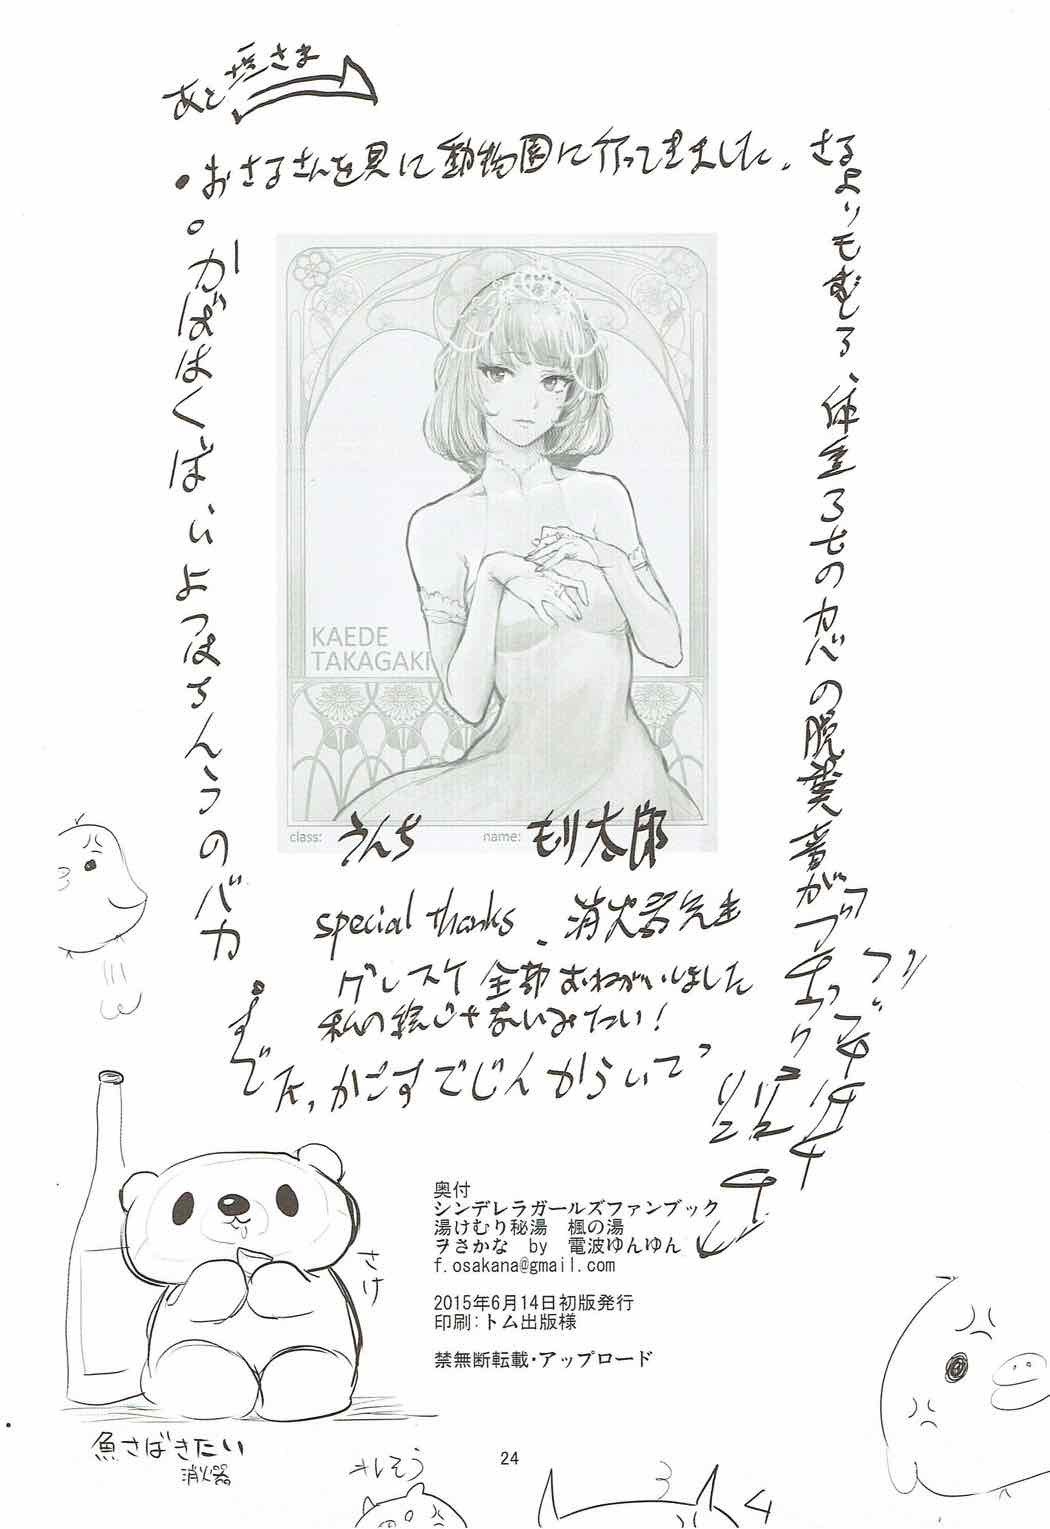 あと塩さま
・おさるさんを見に動物園に行ってきました。さるよりもむしろ、体重3tのカバの脱糞音が
ブリブリ
。かばはくばいよつはちんうのバカ
KAEDE
TAKAGAKI
class: うんち name: もり太郎
special thanks、消火器先生
グレスケ全部おねがいしました
私の絵じゃないみたい!
さけ
奥付
シンデレラガールズファンブック
湯けむり秘湯 楓の湯
ヲさかな by 電波ゆんゆん
f.osakana@gmail.com
2015年6月14日初版発行
印刷:トム出版様
禁無断転載・アップロード
魚さばきたい
消火器
24